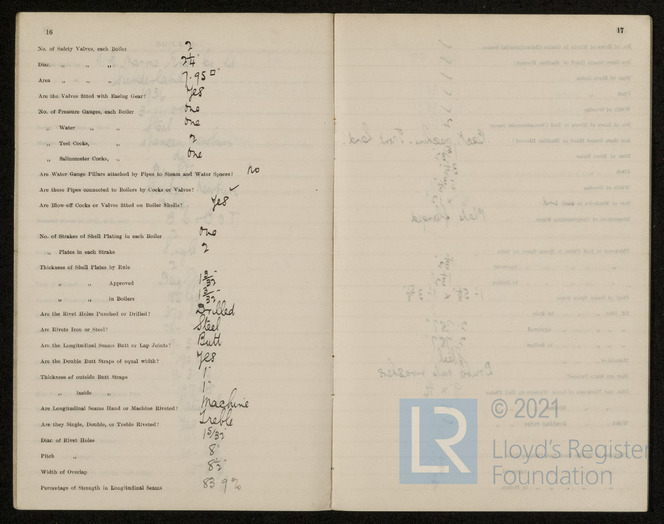 16
No. of Safety Valves, each Boiler 2
Diar. „ „ „ 2¼"
Area „ „ „ 7.95 □"
Are the Valves fitted with Easing Gear? Yes
No. of Pressure Gauges, each Boiler One
„ Water „ „ One
„ Test Cocks, „ 2
„ Salinometer Cocks, „ One
Are Water Gauge Pillars attached by Pipes to Steam and Water Spaces? No
Are these Pipes connected to Boilers by Cocks or Valves? ✓
Are Blow-off Cocks or Valves fitted on Boiler Shells? Yes
No. of Strakes of Shell Plating in each Boiler One
„ Plates in each Strake 2
Thickness of Shell Plates by Rule
„ „ Approved 1 3/32"
„ „ in Boilers 1 3/32"
Are the Rivet Holes Punched or Drilled? Drilled
Are Rivets Iron or Steel? Steel
Are the Longitudinal Seams Butt or Lap Joints? Butt
Are the Double Butt Straps of equal width? Yes
Thickness of outside Butt Straps 1"
„ inside „ 1"
Are Longitudinal Seams Hand or Machine Riveted? Machine
Are they Single, Double, or Treble Riveted? Treble
Diar. of Rivet Holes 1 5/32"
Pitch „ 8"
Width of Overlap
Percentage of Strength in Longitudinal Seams 83.9%
17
© 2021
LR
Lloyd's Register
Foundation